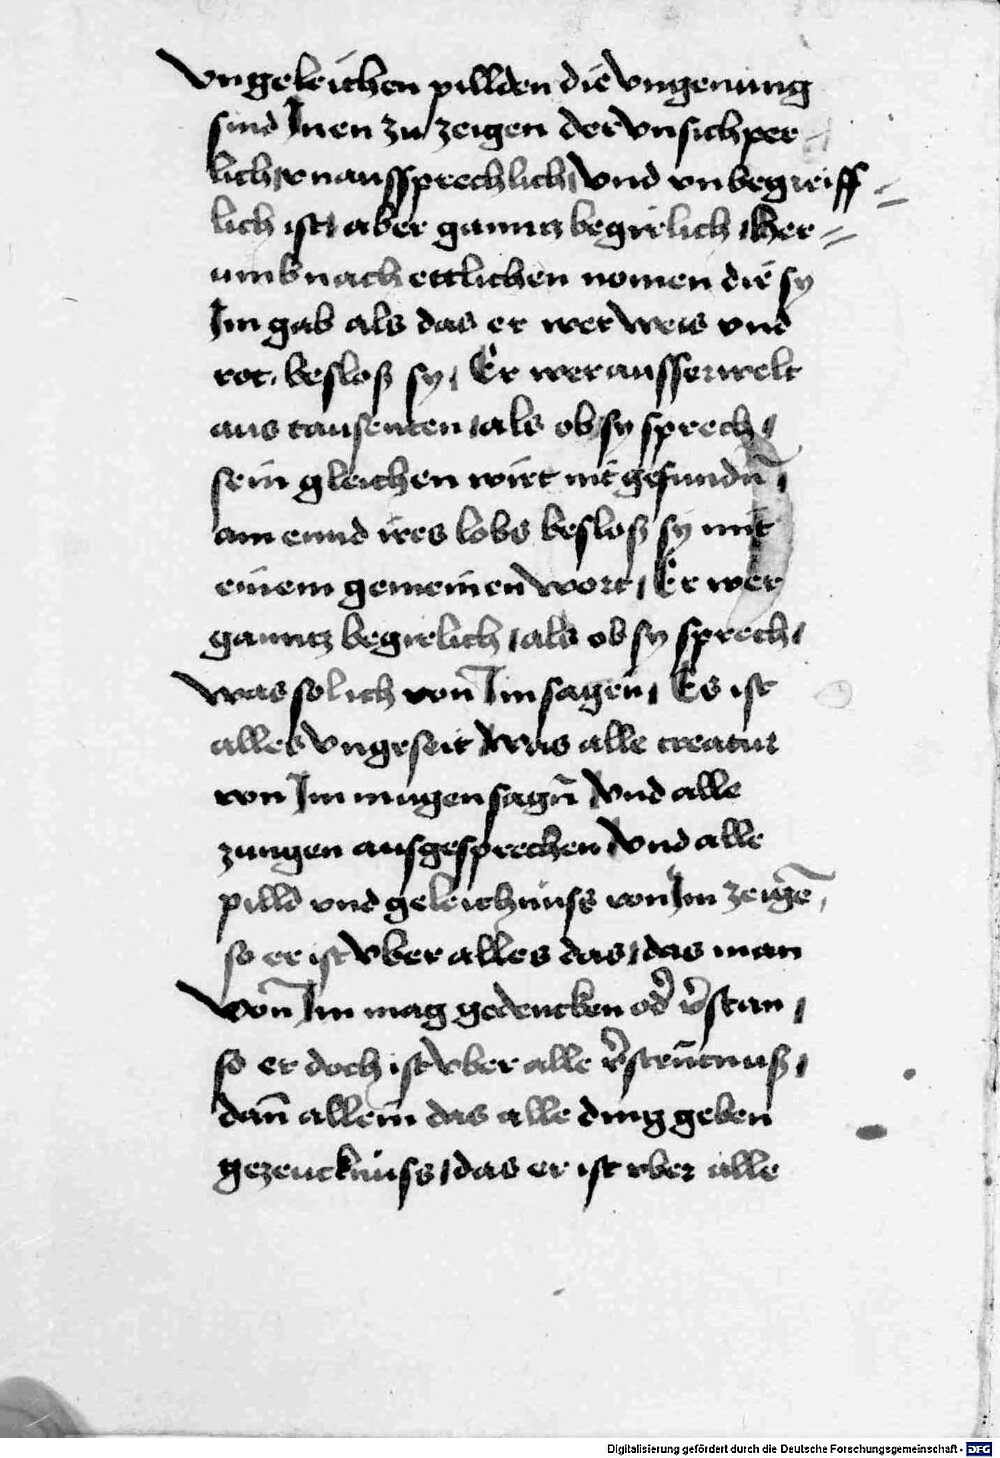 vngeleichen pillden die vngenung
sind Inen zu zeigen der vnsichper
lich vnaussprechlich vnd vnbegreiff=
lich ist aber ganntz begirlich Her=
umb nach ettlichen nomen die sy
Im gab als das er wer weis vnd
rot. besloß sy, Er wer ausserwelt
aus tausenten, als ob sy sprech,
sein gleichen wirt nit gefundn̄,
am ennd ires lobs besloß sy mit
einem gemeinen wort, Er wer
ganntz begirlich, als ob sy sprech,
was sol ich von Im sagen, Es ist
alles vngeseit was alle creatur
von Im mugen sagn̄ vnd alle
zungen ausgesprechen vnd alle
pilld vnd geleichnuss von Im zeigē,
so er ist vber alles das, das man
von Im mag gedencken od̄ v̄stan,
so er doch ist vber alle v̄stentnuß,
dan̄ allein das alle ding geben
gezeucknuss, das er ist vber alle
Digitalisierung gefördert durch die Deutsche Forschungsgemeinschaft - DFG